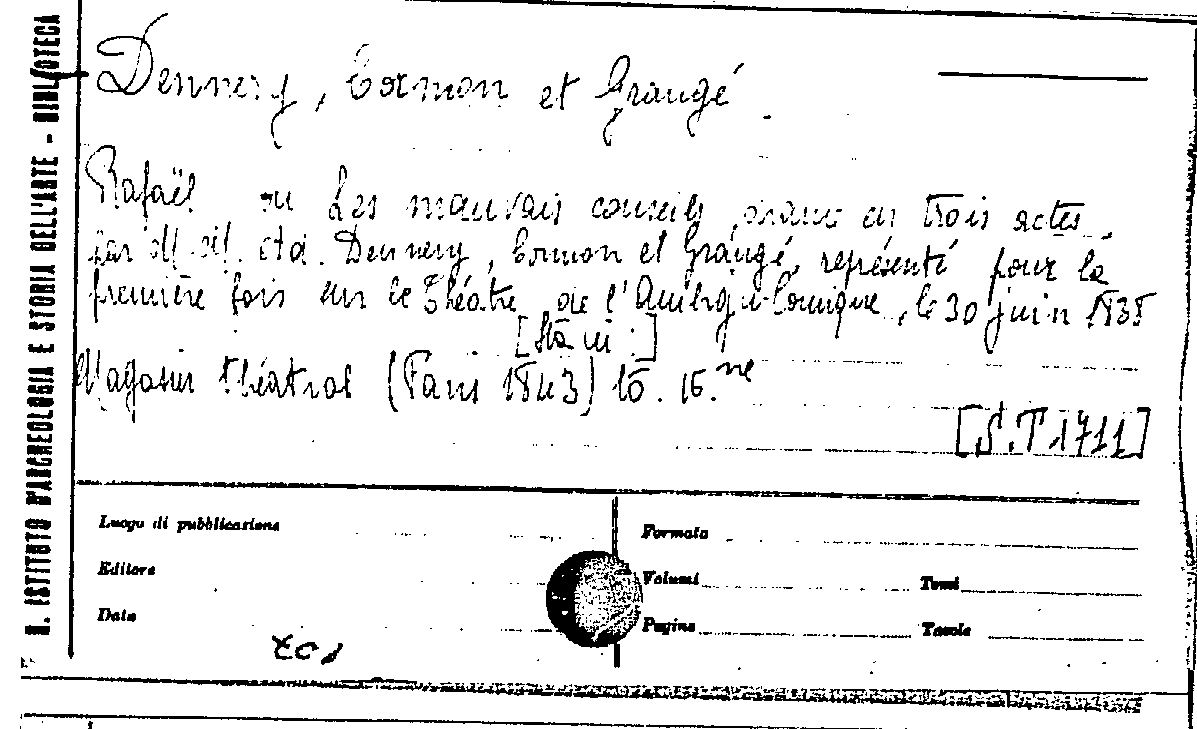 R. ISTITUTO D'ARCHEOLOGIA E STORIA DELL'ARTE - BIBLIOTECA
Dennery, Cormon et Grangé.
Rafaël ou Les mauvais conseils, drame en trois actes,
par Dennery, Cormon et Grangé, représenté pour la
première fois sur le Théâtre de l'Ambigu-Comique, le 30 juin 1838
[Sta in:]
Magasin théatral (Paris 1843) 16.
[S.T.1711]
Luogo di pubblicazione
Formato
Editore
Volumi
Tomi
Data
Pagine
Tavole